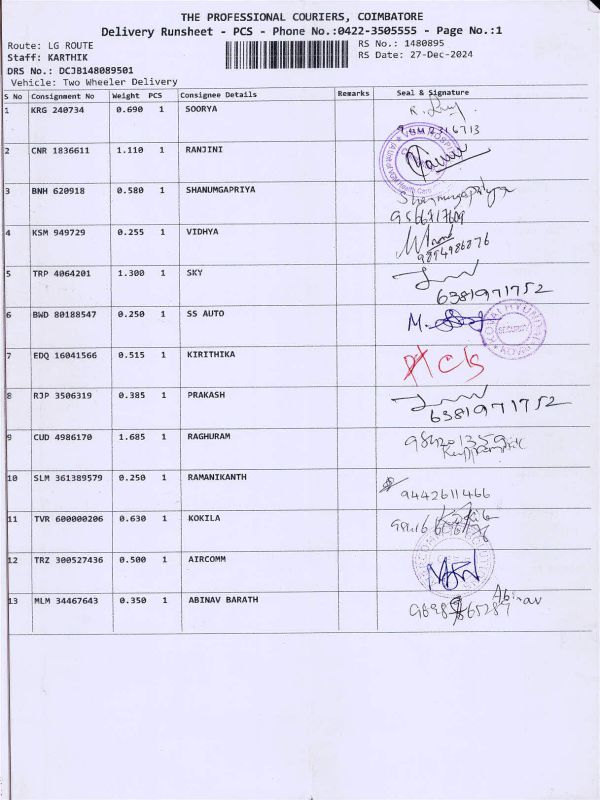 THE PROFESSIONAL COURIERS, COIMBATORE
Delivery Runsheet - PCS - Phone No.:0422-3505555 - Page No.:1
Route: LG ROUTE
RS No.: 1480895
Staff: KARTHIK
RS Date: 27-Dec-2024
DRS No.: DCJB148089501
Vehicle: Two Wheeler Delivery
S No Consignment No Weight PCS Consignee Details Remarks Seal & Signature
1 KRG 240734 0.690 1 SOORYA
2 CNR 1836611 1.110 1 RANJINI
3 BNH 620918 0.580 1 SHANUMGAPRIYA Shanmugapriya
9566717609
4 KSM 949729 0.255 1 VIDHYA
9894986876
5 TRP 4064201 1.300 1 SKY
6381971752
6 BWD 80188547 0.250 1 SS AUTO
7 EDQ 16041566 0.515 1 KIRITHIKA
8 RJP 3506319 0.385 1 PRAKASH
6381971752
9 CUD 4986170 1.685 1 RAGHURAM
10 SLM 361389579 0.250 1 RAMANIKANTH
9442611466
11 TVR 600000206 0.630 1 KOKILA
12 TRZ 300527436 0.500 1 AIRCOMM
13 MLM 34467643 0.350 1 ABINAV BARATH Abinav